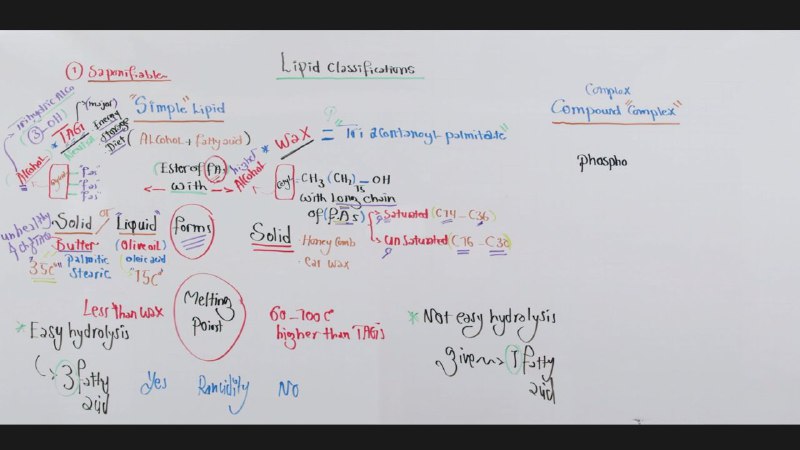 Lipid classifications
① Saponifiable
"Simple" Lipid
(Alcohol + fatty acid)
trihydric Alco
(3-OH)
(major)
* TAG
Neutral
Energy
storage
Diet
Alcohol
"fas"
"fas"
"fas"
Ester of FA
with
higher
Alcohol
* Wax = "Tri acontanoyl-palmitate"
CH3 (CH2)15 - OH
with long chain
of (F.As)
Saturated (C14 - C36)
Unsaturated (C16 - C30)
unhealthy
Solid or "Liquid"
Butter (Olive oil)
Palmitic oleic acid
Stearic
"35c" "15c"
forms
Solid
Honey Comb
Car wax
Less than wax
Melting
Point
60-100c
higher than TAG
* Easy hydrolysis
3 fatty
acid
Yes Rancidity No
* Not easy hydrolysis
given 1 fatty
acid
Complex
Compound "Complex"
phospho